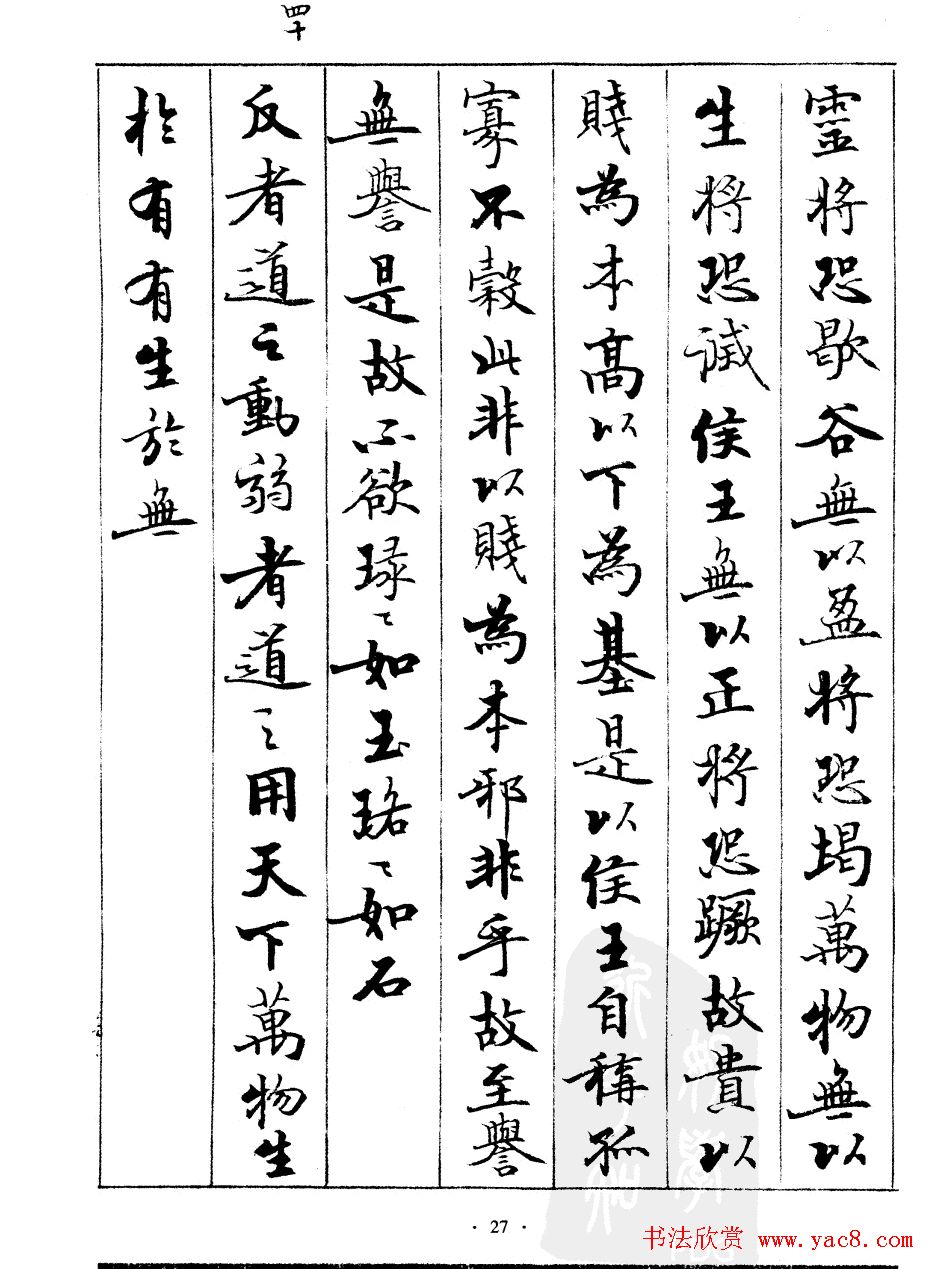 四十
靈將恐歇谷無以盈將恐竭萬物無以
生將恐滅侯王無以正將恐蹶故貴以
賤為本高以下為基是以侯王自稱孤
寡不穀此非以賤為本邪非乎故至譽
無譽是故不欲琭〻如玉珞〻如石
反者道之動弱者道之用天下萬物生
於有有生於無
· 27 ·
书法欣赏 www.yac8.com